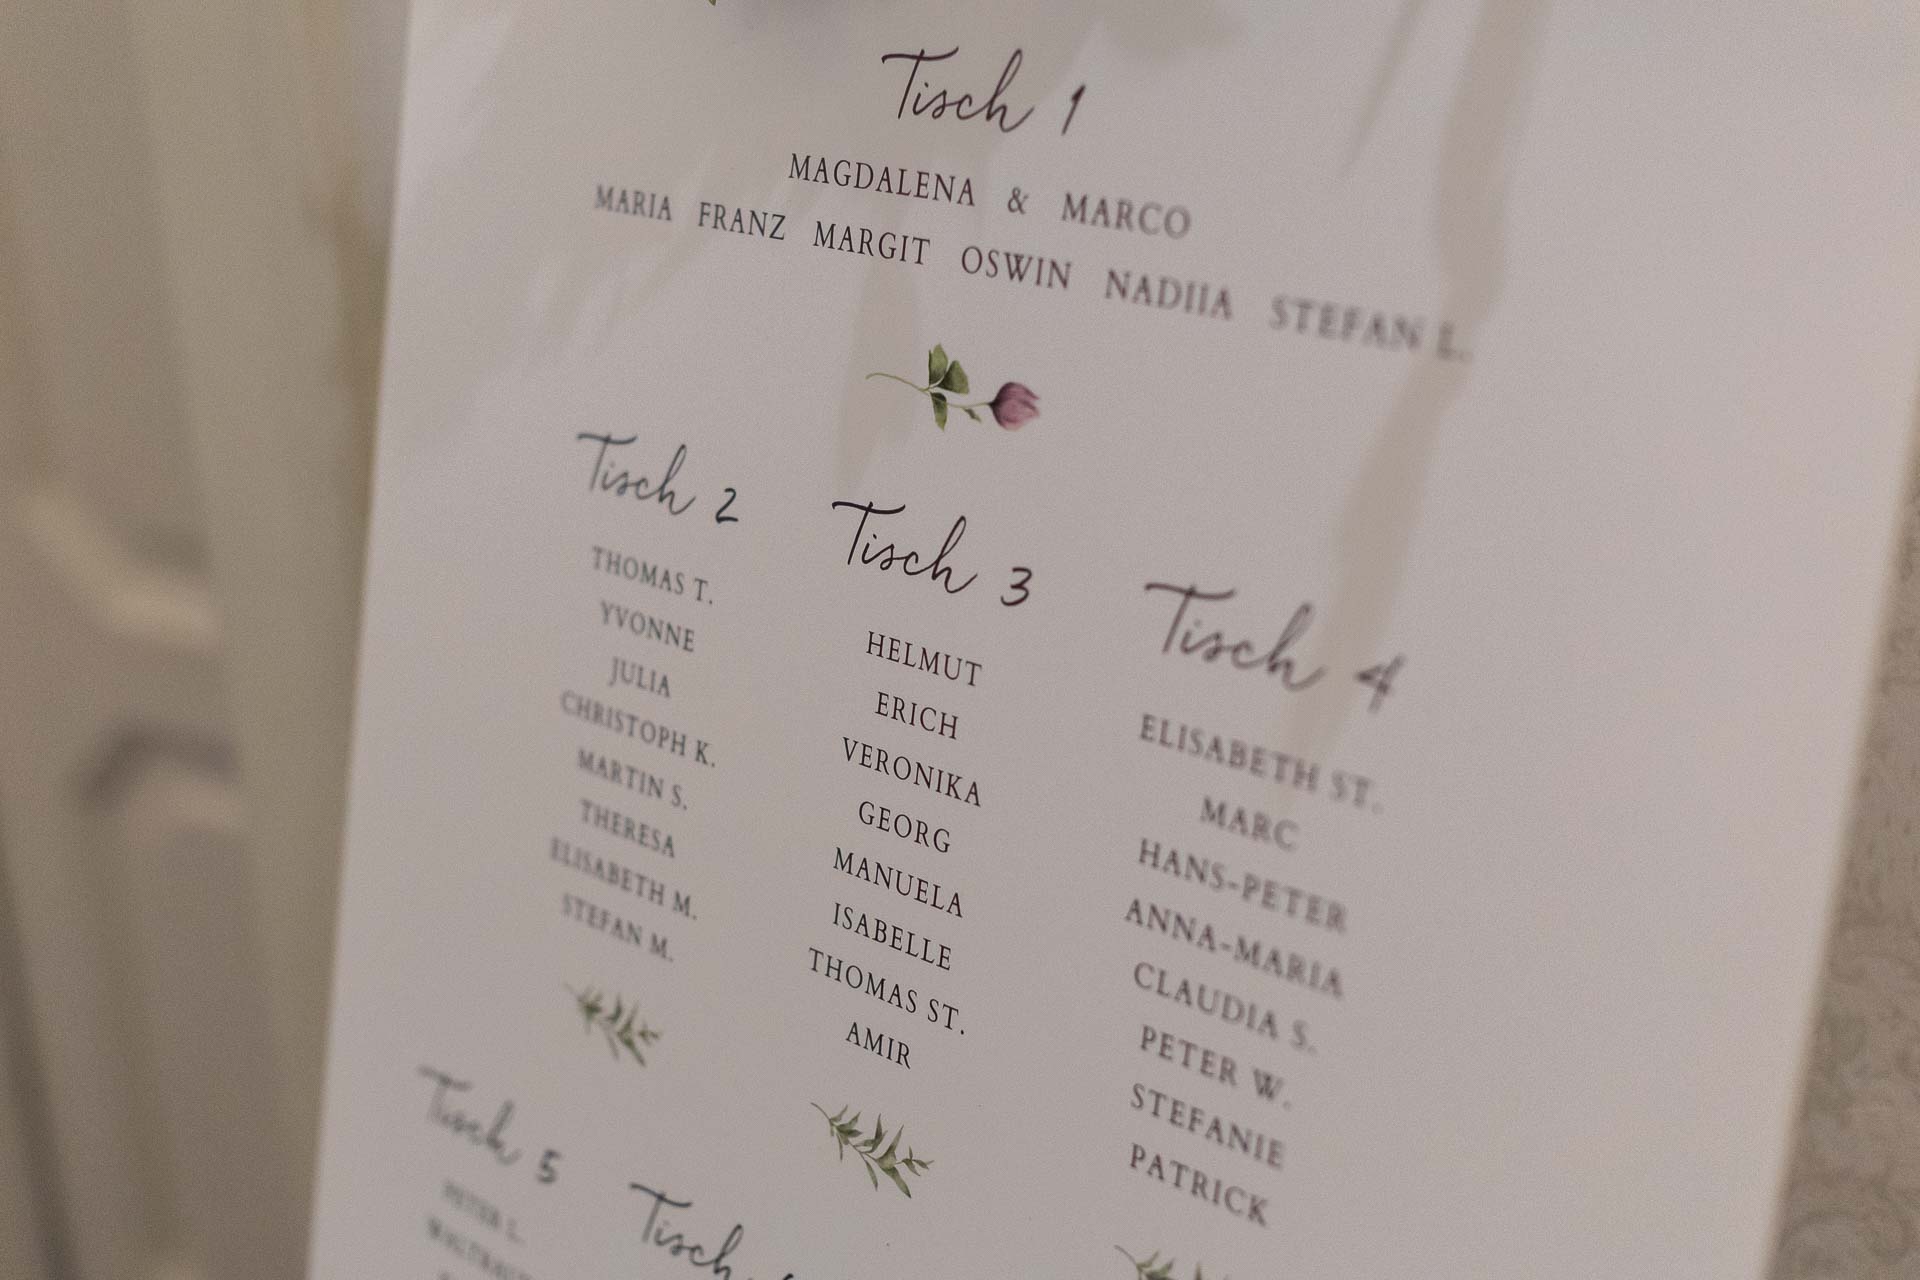 Tisch 1
MAGDALENA & MARCO
MARIA FRANZ MARGIT OSWIN NADIIA STEFAN L.
Tisch 2
THOMAS T.
YVONNE
JULIA
CHRISTOPH K.
MARTIN S.
THERESA
ELISABETH M.
STEFAN M.
Tisch 3
HELMUT
ERICH
VERONIKA
GEORG
MANUELA
ISABELLE
THOMAS ST.
AMIR
Tisch 4
ELISABETH ST.
MARC
HANS-PETER
ANNA-MARIA
CLAUDIA S.
PETER W.
STEFANIE
PATRICK
Tisch 5
PETER L.
Tisch